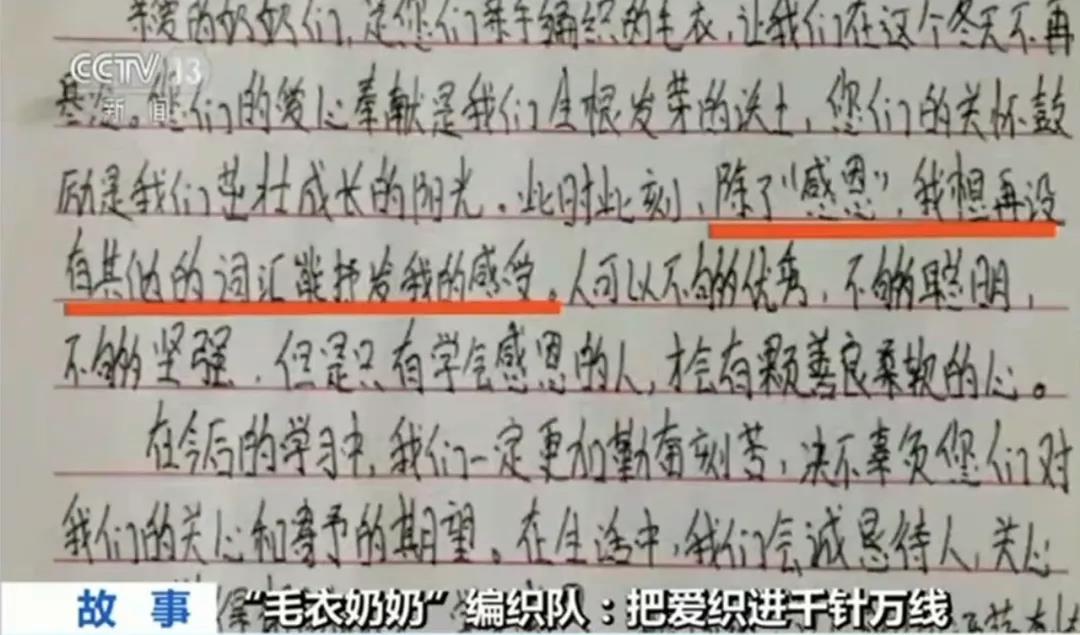 亲爱的奶奶们，是您们亲手编织的毛衣，让我们在这个冬天不再
CCTV 13
新闻
基冷。您们的爱心奉献是我们生根发芽的沃土，您们的关怀鼓
励是我们茁壮成长的阳光。此时此刻，除了“感恩”，我想再没
有其他的词汇能抒发我的感受。人可以不够优秀，不够聪明，
不够坚强，但是只有学会感恩的人，才会有颗善良柔软的心。
在今后的学习中，我们一定更加勤奋刻苦，决不辜负您们对
我们的关心和寄予的期望。在生活中，我们会诚恳待人，关心
故事
“毛衣奶奶”编织队：把爱织进千针万线